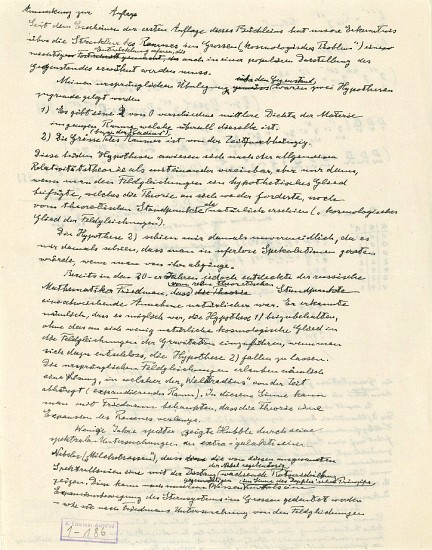 Anmerkung zur Auflage
Seit dem Erscheinen der ersten Auflage dieses Büchleins hat unsere Erkenntnis
über die Struktur des Raumes im Grossen („kosmologisches Problem") eine
Entwicklung erfahren, die auch in einer populären Darstellung des
Gegenstandes erwähnt werden muss.
über den Gegenstand
Meine ursprünglichen Überlegungen waren zwei Hypothesen
zugrunde gelegt
1) Es gibt eine von 0 verschiedene mittlere Dichte der Materie
im ganzen Raume, welche überall dieselbe ist.
(bezw. der „Radius")
2) Die Grösse des Raumes ist von der Zeit unabhängig.
Diese beiden Hypothesen erwiesen sich nach der allgemeinen
Relativitätstheorie als miteinander vereinbar, aber nur dann,
wenn man den Feldgleichungen ein hypothetisches Glied
beifügte, welches die Theorie an sich weder forderte, noch
vom theoretischen Standpunkte natürlich erschien („kosmologisches
Glied der Feldgleichungen").
Die Hypothese 2) schien mir damals unvermeidlich, da es
mir damals schien, dass man in uferlose Spekulationen geraten
würde, wenn man von ihr abginge.
Bereits in den 20-er Jahren jedoch entdeckte der russische
Mathematiker Friedman, dass vom rein theoretischen Standpunkte
eine abweichende Annahme natürlicher war. Er erkannte
nämlich, dass es möglich war, die Hypothese 1) beizubehalten,
ohne das an sich wenig natürliche kosmologische Glied in
die Feldgleichungen der Gravitation einzuführen, wenn man
sich dazu entschloss, die Hypothese 2) fallen zu lassen.
Die ursprünglichen Feldgleichungen erlauben nämlich
eine Lösung, in welcher der „Weltradius" von der Zeit
abhängt (expandierender Raum). In diesem Sinne kann
man mit Friedman behaupten, dass die Theorie eine
Expansion des Raumes verlange.
Wenige Jahre später zeigte Hubble durch eine
spektrale Untersuchungen der extra-galaktischen
Nebel („Milchstrassen"), dass die von diesen ausgesandten
Spektrallinien eine mit der Distanz der Nebel regelmässig wachsende Rotverschiebung
zeigen. Diese kann nach im Sinne des Doppler'schen Prinzips
Expansionsbewegung des Sternsystems im Grossen gedeutet werden
wie sie nach Friedmans Untersuchung von den Feldgleichungen
1-186